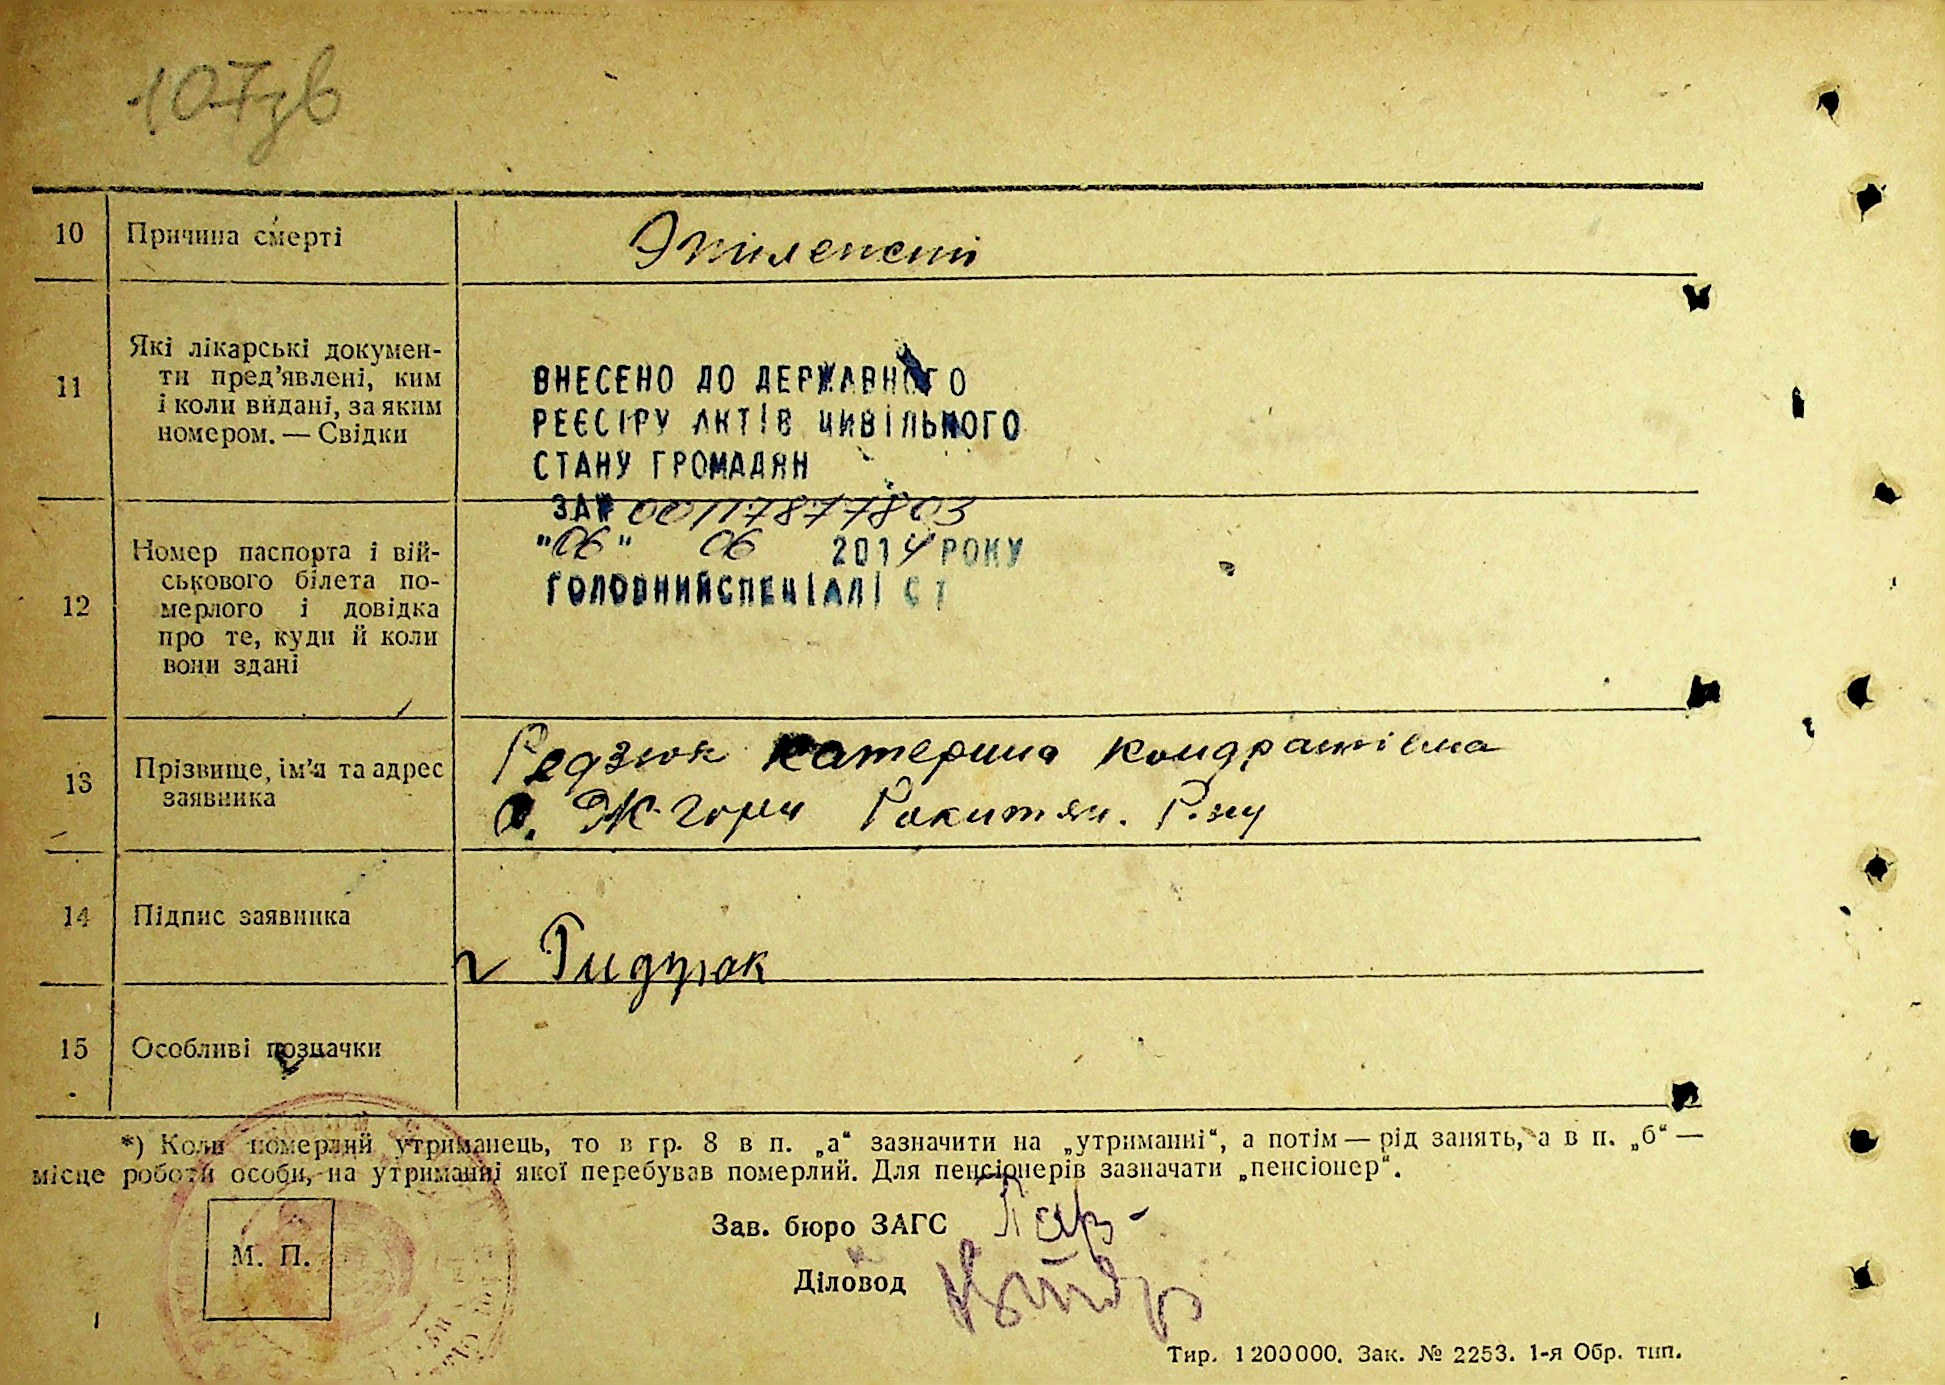 107зв
10 Причина смерті
Эпілепсиі
11 Які лікарські докумен-
ти пред’явлені, ким
і коли видані, за яким
номером. — Свідки
ВНЕСЕНО ДО ДЕРЖАВНОГО
РЕЄСТРУ АКТІВ ЦИВІЛЬНОГО
СТАНУ ГРОМАДЯН
ЗА № 00117877803
"06" 06 2014 РОКУ
ГОЛОВНИЙ СПЕЦІАЛІСТ
12 Номер паспорта і вій-
ськового білета по-
мерлого і довідка
про те, куди й коли
вони здані
13 Прізвище, ім’я та адрес
заявника
Редзюк Катерина Кондратівна
с. Ж-Гори Ракитян. Р-ну
14 Підпис заявника
15 Особливі позначки
*) Коли померлий утриманець, то в гр. 8 в п. „а“ зазначити на „утриманні“, а потім — рід занять, а в п. „б“ —
місце роботи особи, на утриманні якої перебував померлий. Для пенсіонерів зазначати „пенсіонер“.
Зав. бюро ЗАГС
М. П.
Діловод
Тир. 1200000. Зак. № 2253. 1-я Обр. тип.